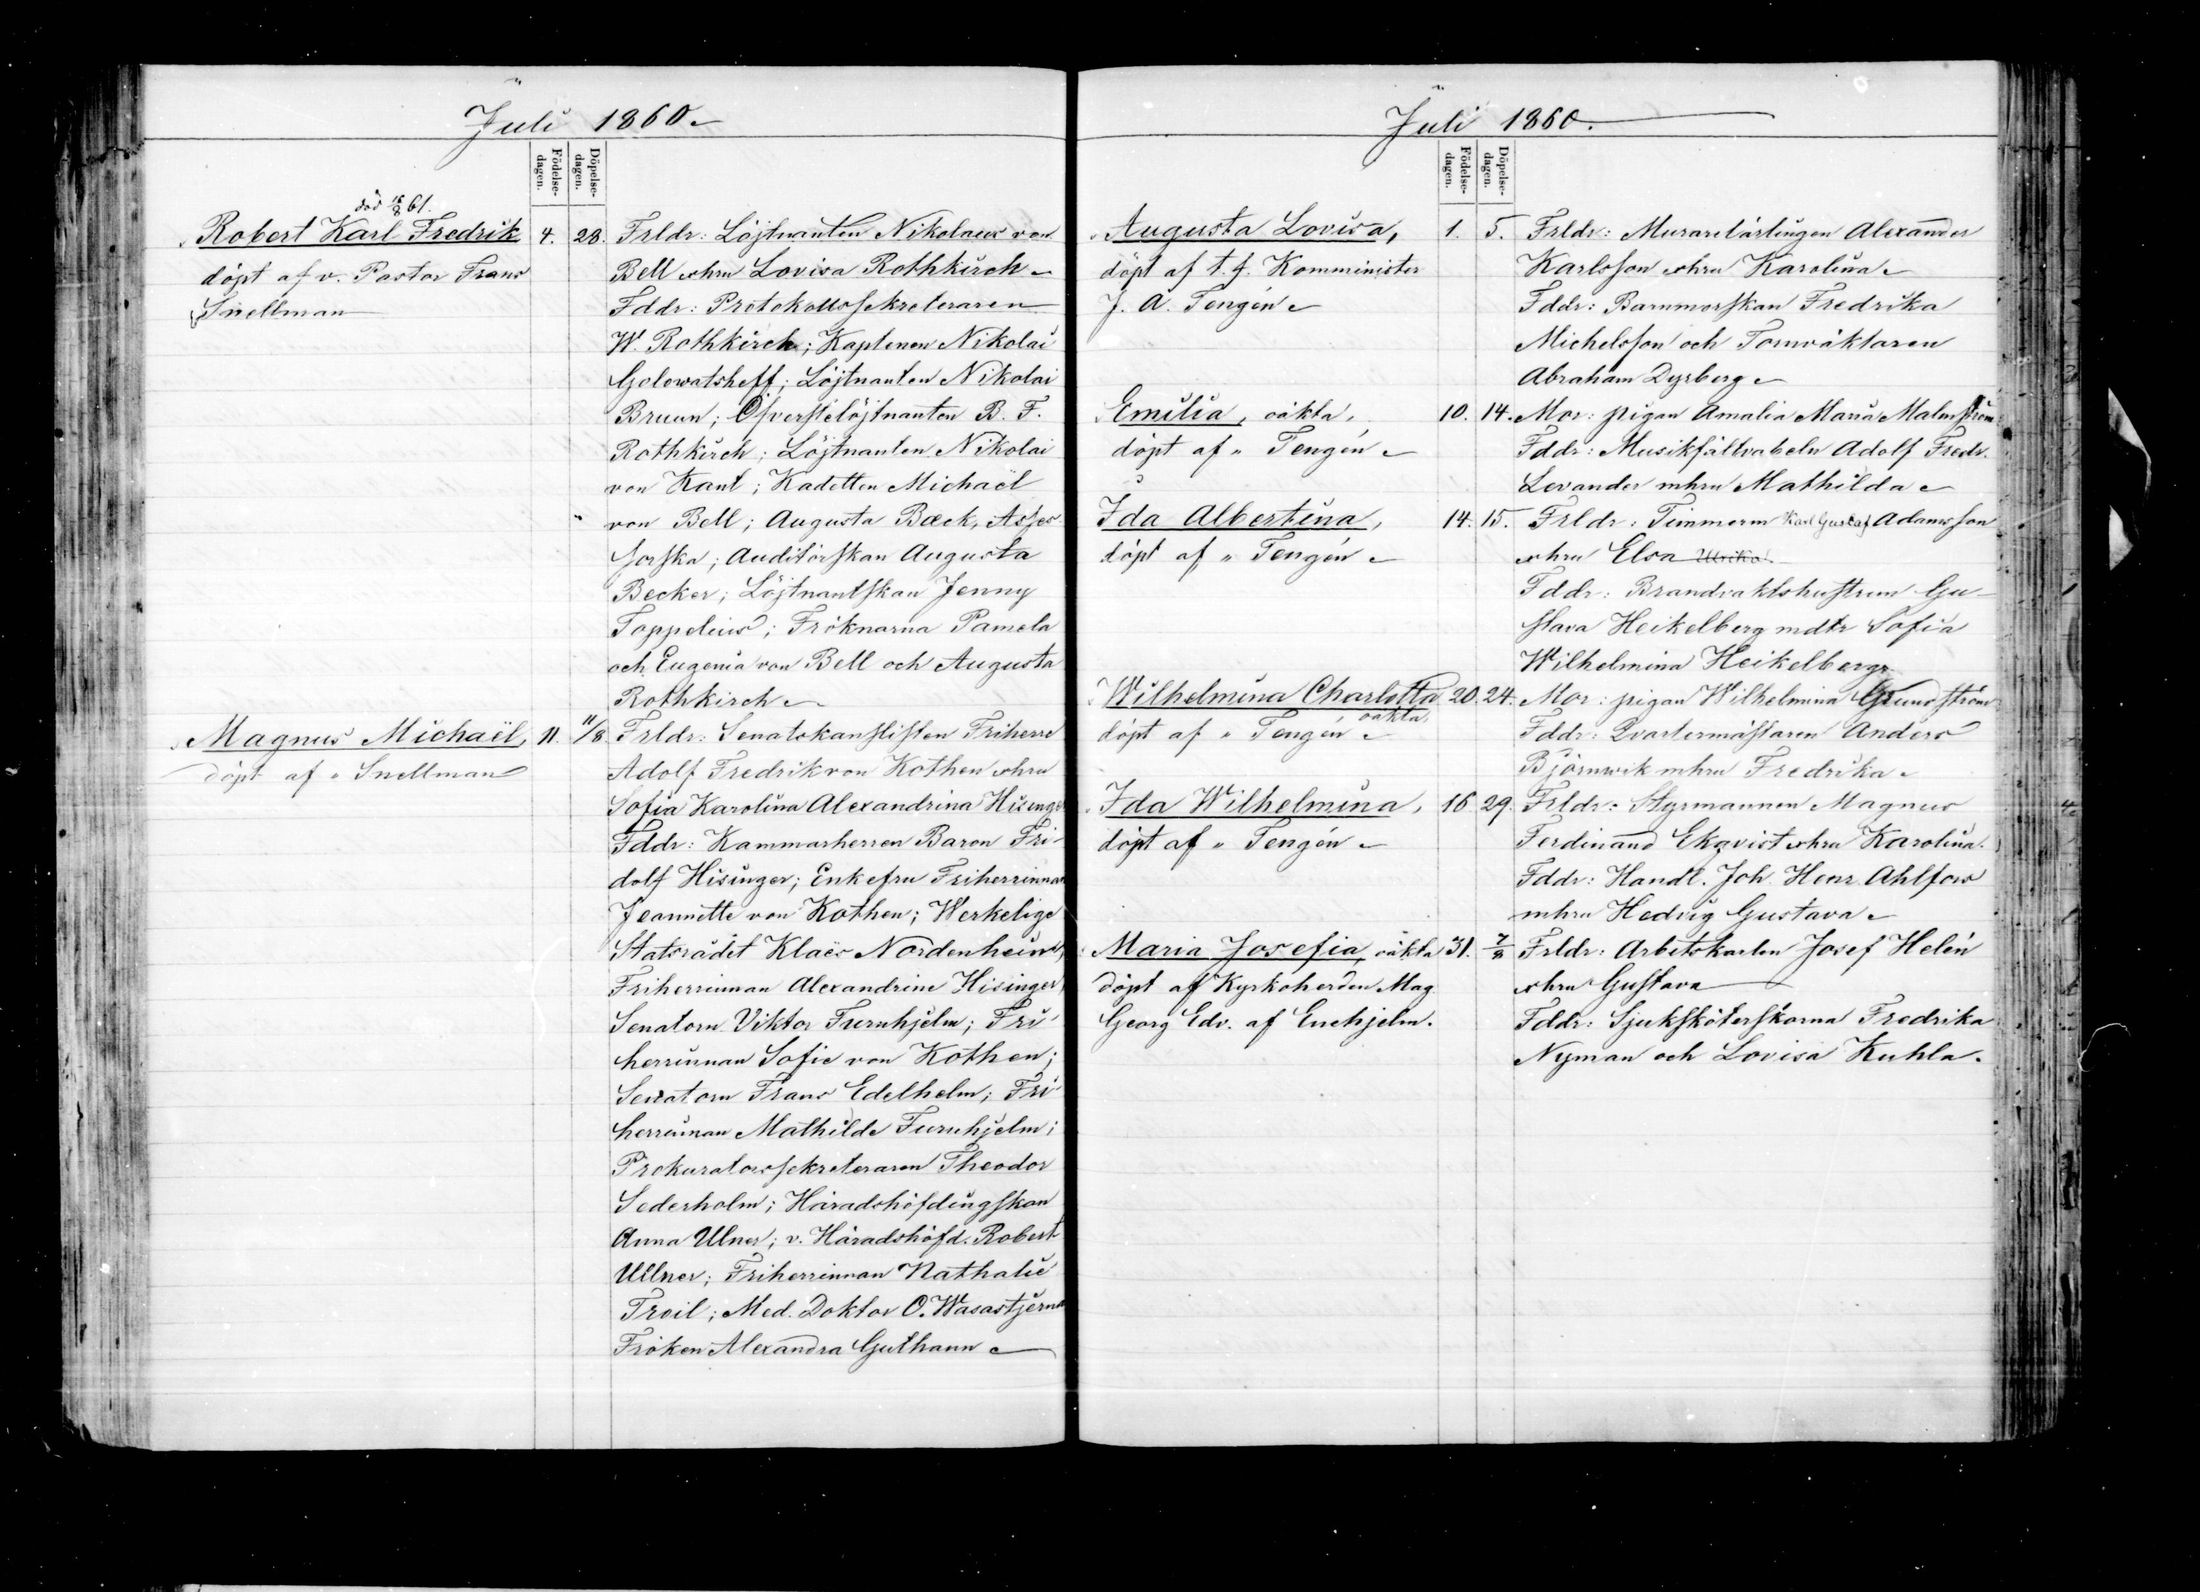 Juli 1860.
Födelse-
dagen.
Döpelse-
dagen.
död 61.
Robert Karl Fredrik 4. 28. Frldr: Löjtnanten Nikolaus von
döpt af v. Pastor Frans Bell o hru Lovisa Rothkirch
Snellman Fddr: Protokollssekreteraren
W. Rothkirch; Kaptenen Nikolai
Golowatsheff; Löjtnanten Nikolai
Bruun; Öfverstelöjtnanten B. F.
Rothkirch; Löjtnanten Nikolai
von Kant; Kadetten Michaël
von Bell; Augusta Bæck, Asses-
sorska; Auditörskan Augusta
Becker; Löjtnantskan Jenny
Toppelius; Fröknarna Pamela
och Eugenia von Bell och Augusta
Rothkirch
Magnus Michaël, 11. 11/8. Frldr: Senatskanslisten Friherre
döpt af " Snellman Adolf Fredrik von Kothen o hru
Sofia Karolina Alexandrina Hisinger
Fddr: Kammarherren Baron Fri-
dolf Hisinger; Enkefru Friherrinnan
Jeannette von Kothen; Werkelige
Statsrådet Klaës Nordenheim,
Friherrinnan Alexandrine Hisinger,
Senatorn Viktor Furuhjelm; Fri-
herrinnan Sofie von Kothen;
Senatorn Frans Edelhelm; Fri-
herrinnan Mathilde Furuhjelm;
Prokuratorssekreteraren Theodor
Sederholm; Häradshöfdingskan
Anna Ulner; v. Häradshöfd. Robert
Ullner; Friherrinnan Nathalie
Troil; Med. Doktor O. Wasastjerna
Fröken Alexandra Guthann
Juli 1860.
Födelse-
dagen.
Döpelse-
dagen.
Augusta Lovisa, 1. 5. Frldr: Murarelärlingen Alexander
döpt af t. f. Komminister Karlsson o hru Karolina
J. A. Tengén Fddr: Barnmorskan Fredrika
Michelsson och Tornväktaren
Abraham Dyrberg
Emilia, oäkta, 10. 14. Mor: pigan Amalia Maria Malmström
döpt af " Tengén Fddr: Musikfältvabeln Adolf Fredr.
Levander m hru Mathilda
Ida Albertina, 14. 15. Frldr: Timmerm Karl Gustaf Adamsson
döpt af " Tengén o hru Elsa Ulrika
Fddr: Brandvaktshustrun Gu-
stava Heikelberg m dtr Sofia
Wilhelmina Heikelberg
Wilhelmina Charlotta 20. 24. Mor: pigan Wilhelmina Grundström
oäkta
döpt af " Tengén Fddr: Qvartermästaren Anders
Björnwik m hru Fredrika
Ida Wilhelmina, 16. 29. Frldr: Styrmannen Magnus
döpt af " Tengén Ferdinand Ekqvist o hru Karolina.
Fddr: Handl. Joh. Henr. Ahlfors
m hru Hedvig Gustava
Maria Josefia, oäkta 31. 7/8 Frldr: Arbetskarlen Josef Helén
döpt af Kyrkoherden Mag. o hru Gustava
Georg Edv. af Enehjelm. Fddr: Sjuksköterskorna Fredrika
Nyman och Lovisa Kuhla.